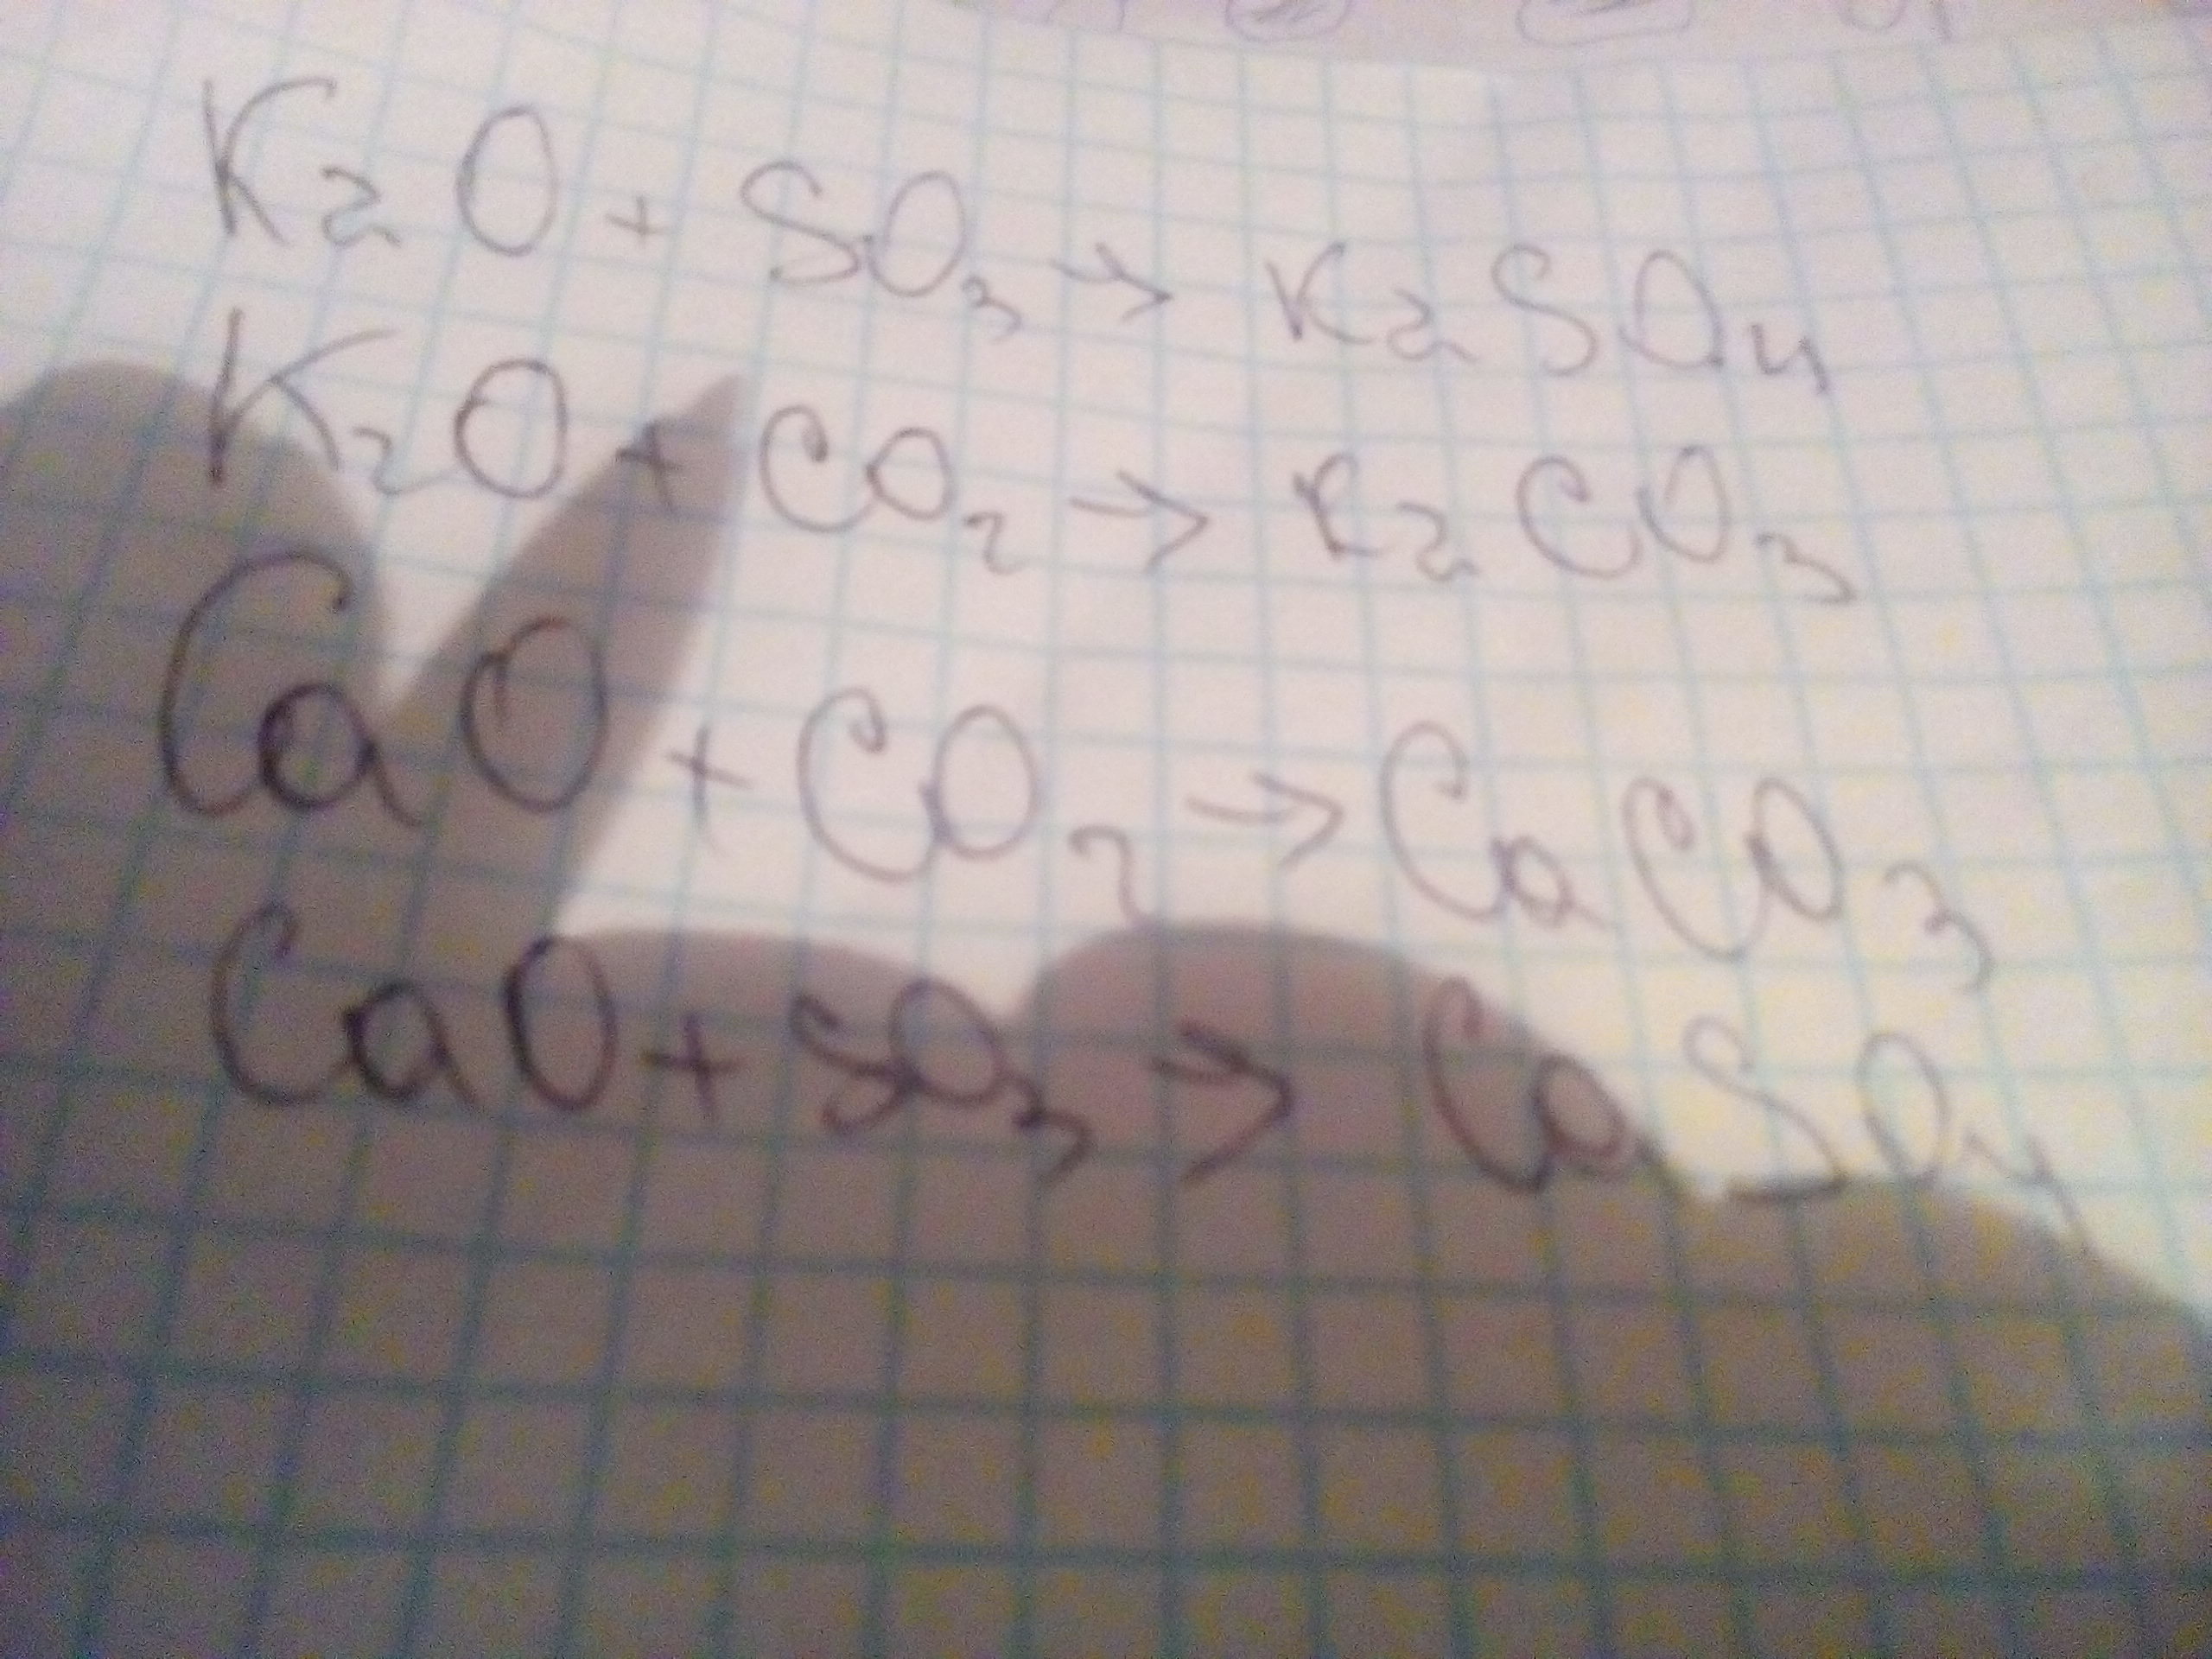 K₂O + SO₃ → K₂SO₄
K₂O + CO₂ → K₂CO₃
CaO + CO₂ → CaCO₃
CaO + SO₃ → CaSO₄